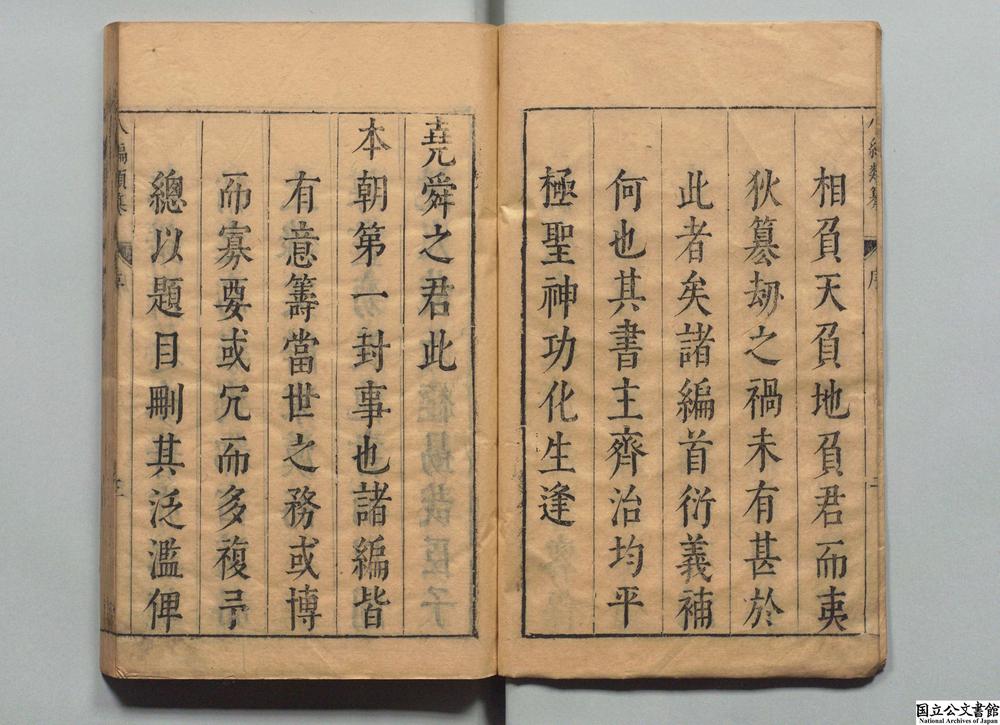 八編類纂 序
相負天負地負君而夷
狄簒劫之禍未有甚於
此者矣諸編首衍義補
何也其書主齊治均平
極聖神功化生逢
堯舜之君此
本朝第一封事也諸編皆
有意籌當世之務或博
而寡要或冗而多複予
總以題目刪其泛濫俾
八編類纂 序
国立公文書館
National Archives of Japan